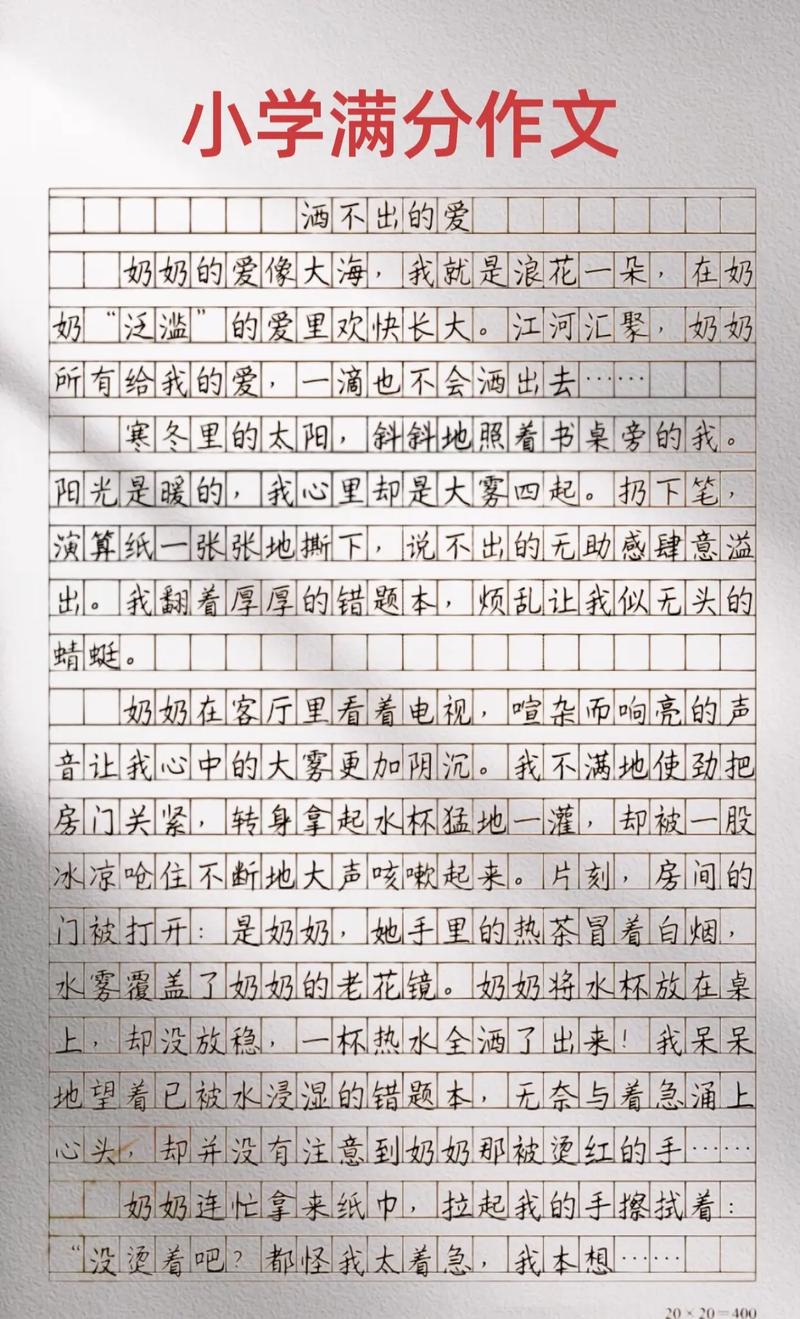 小学满分作文
洒不出的爱
奶奶的爱像大海，我就是浪花一朵，在奶
奶“泛滥”的爱里欢快长大。江河汇聚，奶奶
所有给我的爱，一滴也不会洒出去……
寒冬里的太阳，斜斜地照着书桌旁的我。
阳光是暖的，我心里却是大雾四起。扔下笔，
演算纸一张张地撕下，说不出的无助感肆意溢
出。我翻着厚厚的错题本，烦乱让我似无头的
蜻蜓。
奶奶在客厅里看着电视，喧杂而响亮的声
音让我心中的大雾更加阴沉。我不满地使劲把
房门关紧，转身拿起水杯猛地一灌，却被一股
冰凉呛住不断地大声咳嗽起来。片刻，房间的
门被打开：是奶奶，她手里的热茶冒着白烟，
水雾覆盖了奶奶的老花镜。奶奶将水杯放在桌
上，却没放稳，一杯热水全洒了出来！我呆呆
地望着已被水浸湿的错题本，无奈与着急涌上
心头，却并没有注意到奶奶那被烫红的手……
奶奶连忙拿来纸巾，拉起我的手擦拭着：
“没烫着吧？都怪我太着急，我本想……
20×20=400